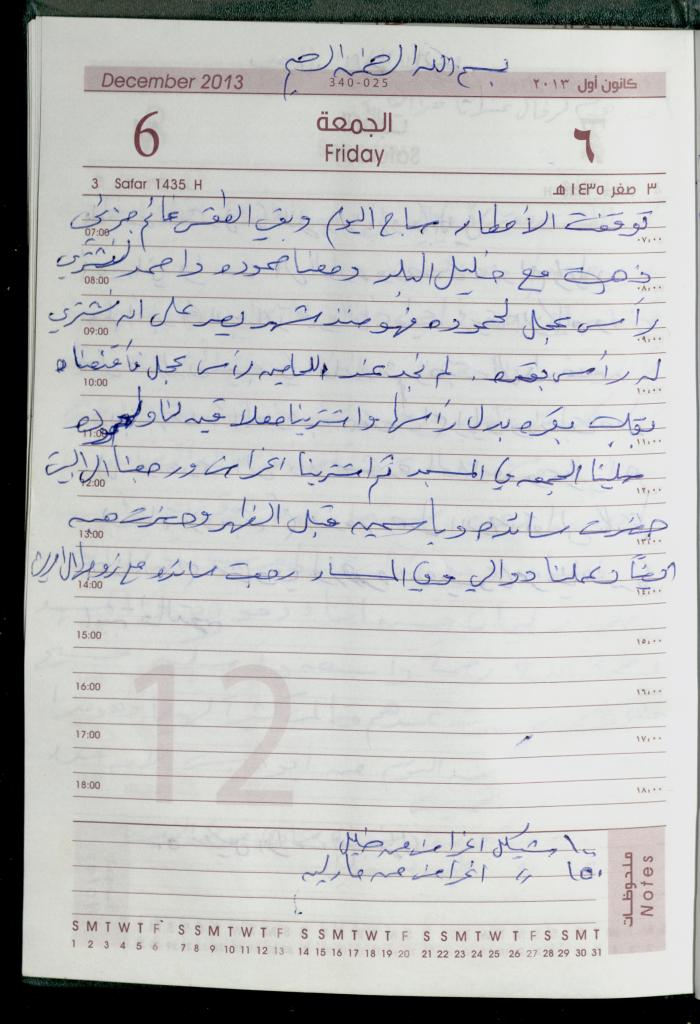 بسم الله الرحمن الرحيم
December 2013 340-025 كانون أول ٢٠١٣
6 الجمعة ٦
Friday
3 Safar 1435 H ٣ صفر ١٤٣٥ هـ
توقفت الأمطار صباح اليوم وبقي الطقس غائم جزئي
07:00 ٠٧:٠٠
ذهبت مع خليل البلد ومعنا حموده واحمد لنشتري
08:00 ٠٨:٠٠
رأس عجل لحموده فهو منذ شهر يصر على ان نشتري
09:00 ٠٩:٠٠
له رأس بقره. لم نجد عند اللحامين رأس عجل فأقنعناه
10:00 ١٠:٠٠
بقلب بقره بدل رأسها واشترينا معلاقيه لنا
11:00 ١١:٠٠
صلينا الجمعه في المسجد ثم اشترينا اغراض ورجعنا الى البيت
12:00 ١٢:٠٠
حضرت سائده وباسمه قبل الظهر وحضرت هبه
13:00 ١٣:٠٠
ايضاً وعملنا دوالي وفي المساء رجعت سائده مع زوجها
14:00 ١٤:٠٠
15:00 ١٥:٠٠
16:00 ١٦:٠٠
17:00 ١٧:٠٠
18:00 ١٨:٠٠
12
١٠٠ شيكل اغراض من خليل
١٥٠ " اغراض من
ملحوظات
Notes
S M T W T F S S M T W T F S S M T W T F S S M T W T F S S M T
1 2 3 4 5 6 7 8 9 10 11 12 13 14 15 16 17 18 19 20 21 22 23 24 25 26 27 28 29 30 31